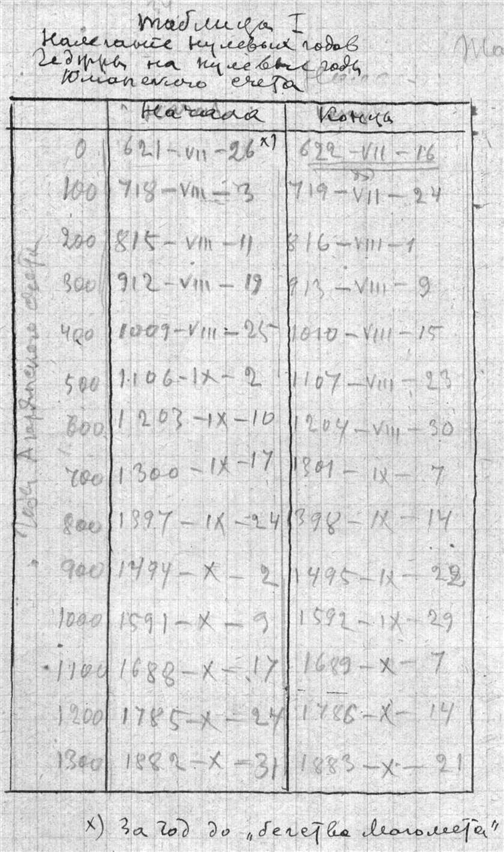 Таблица I
Налегание нулевых годов
Геджры на нулевые годы
Юлианского счета
Начала Конца
0 621-VII-26 x) 622-VII-16
100 718-VIII-3 719-VII-24
200 815-VIII-11 816-VIII-1
300 912-VIII-19 913-VIII-9
400 1009-VIII-25 1010-VIII-15
500 1106-IX-2 1107-VIII-23
600 1203-IX-10 1204-VIII-30
700 1300-IX-17 1301-IX-7
800 1397-IX-24 1398-IX-14
900 1494-X-2 1495-IX-22
1000 1591-X-9 1592-IX-29
1100 1688-X-17 1689-X-7
1200 1785-X-24 1786-X-14
1300 1882-X-31 1883-X-21
Годы Агарянского счета
x) За год до „бегства Магомета"